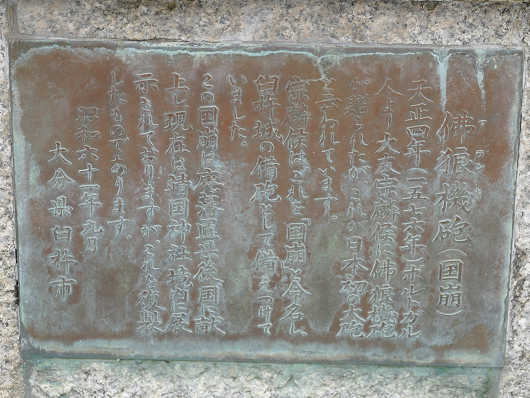 佛狼機砲(国崩)
天正四年(一五七六年)ポルトガル
人より大友宗麟侯に佛狼機砲
が贈られたがこれが日本初の大砲
と云われています。
宗麟侯はこれを国崩と命名し
臼杵城の備砲として備えつけて
いました。
この国崩は廃藩直後国に献
上現在は靖国神社境内に展
示されておりますが、これを復興
したものであります。
昭和六十一年九月
大分県臼杵市